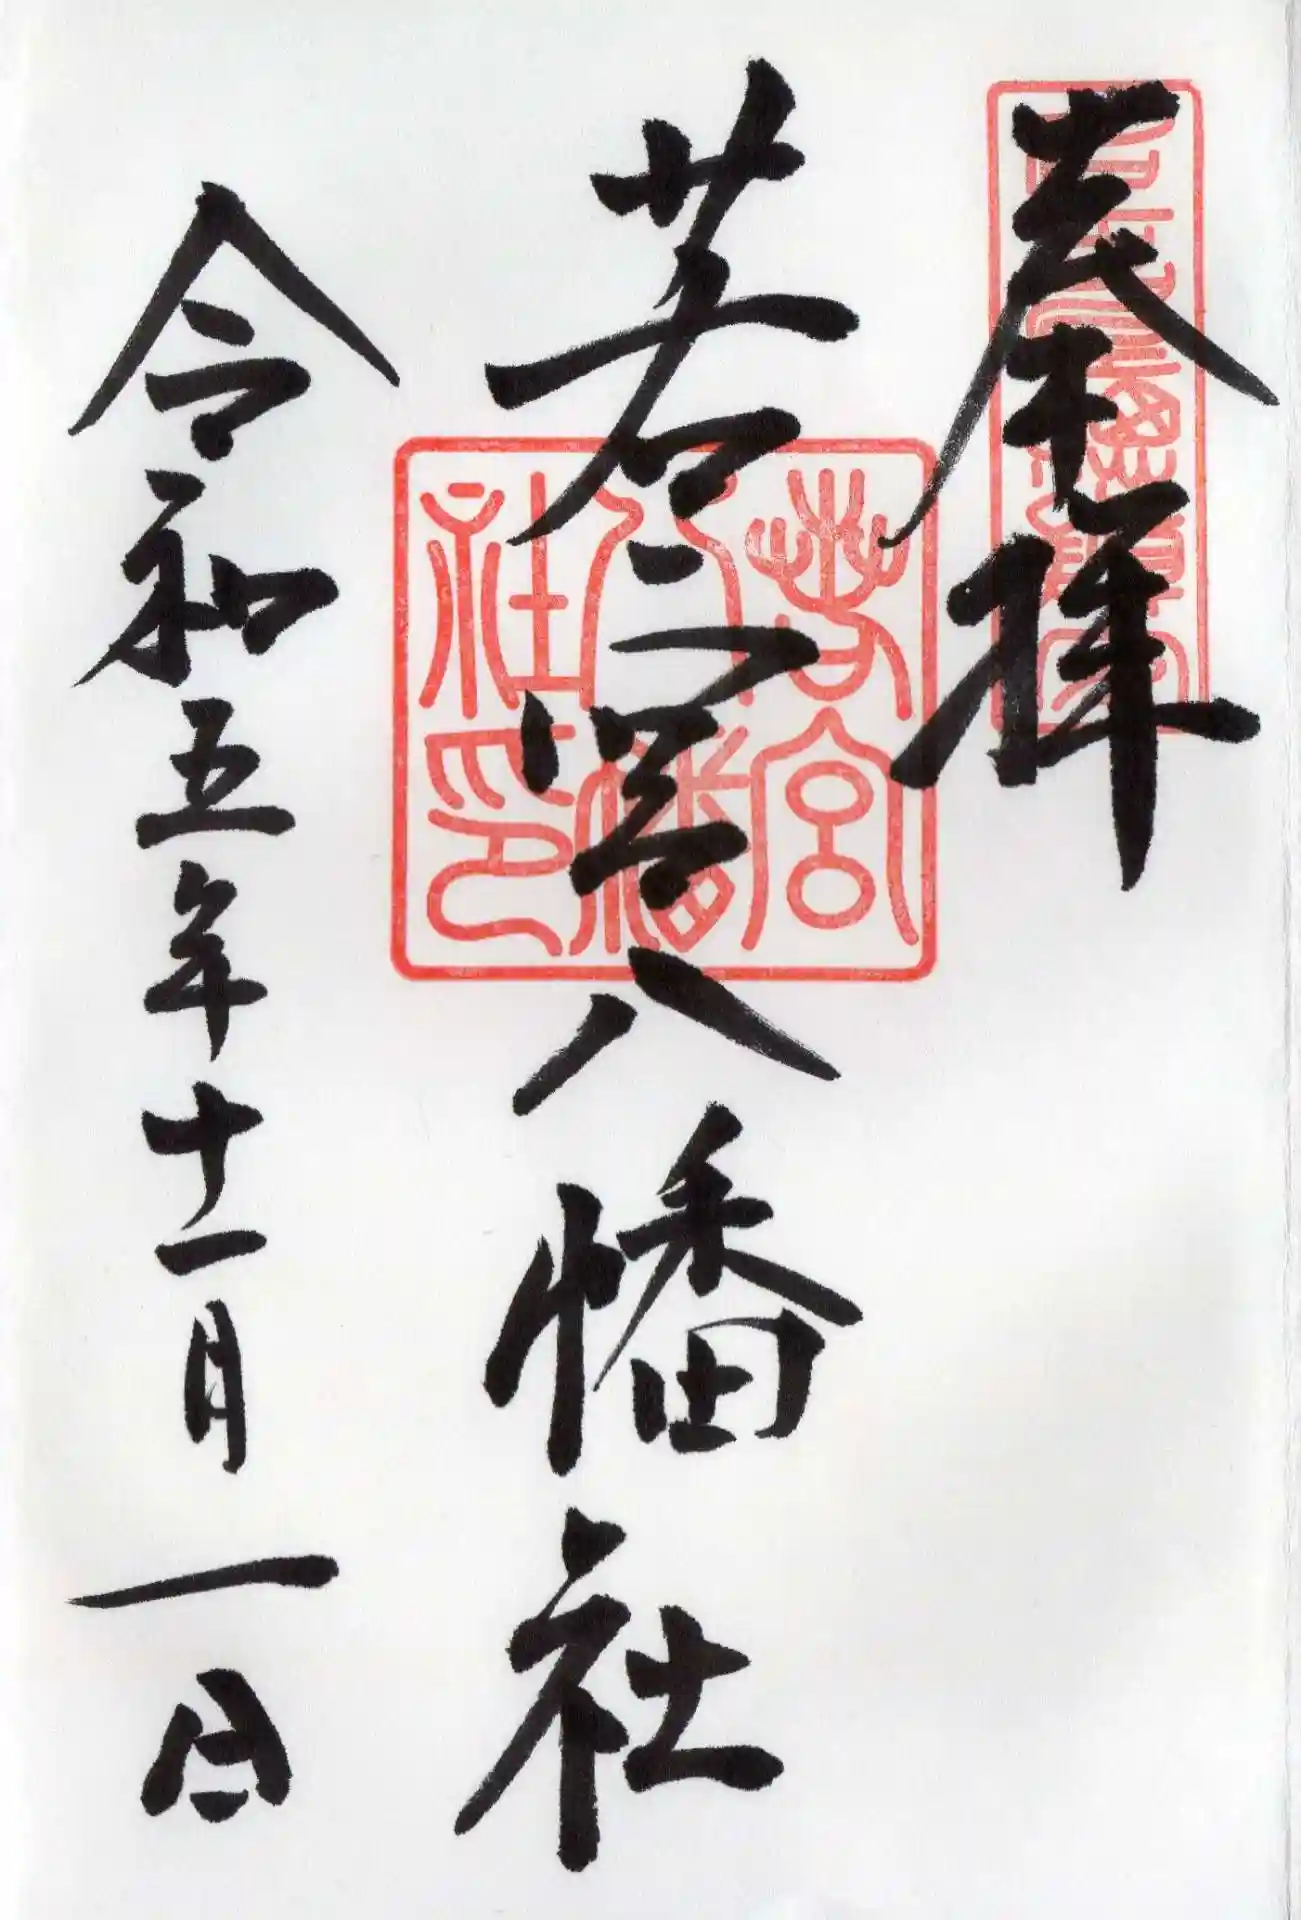 奉拝
若宮八幡社
若宮八幡社印
令和五年十一月一日